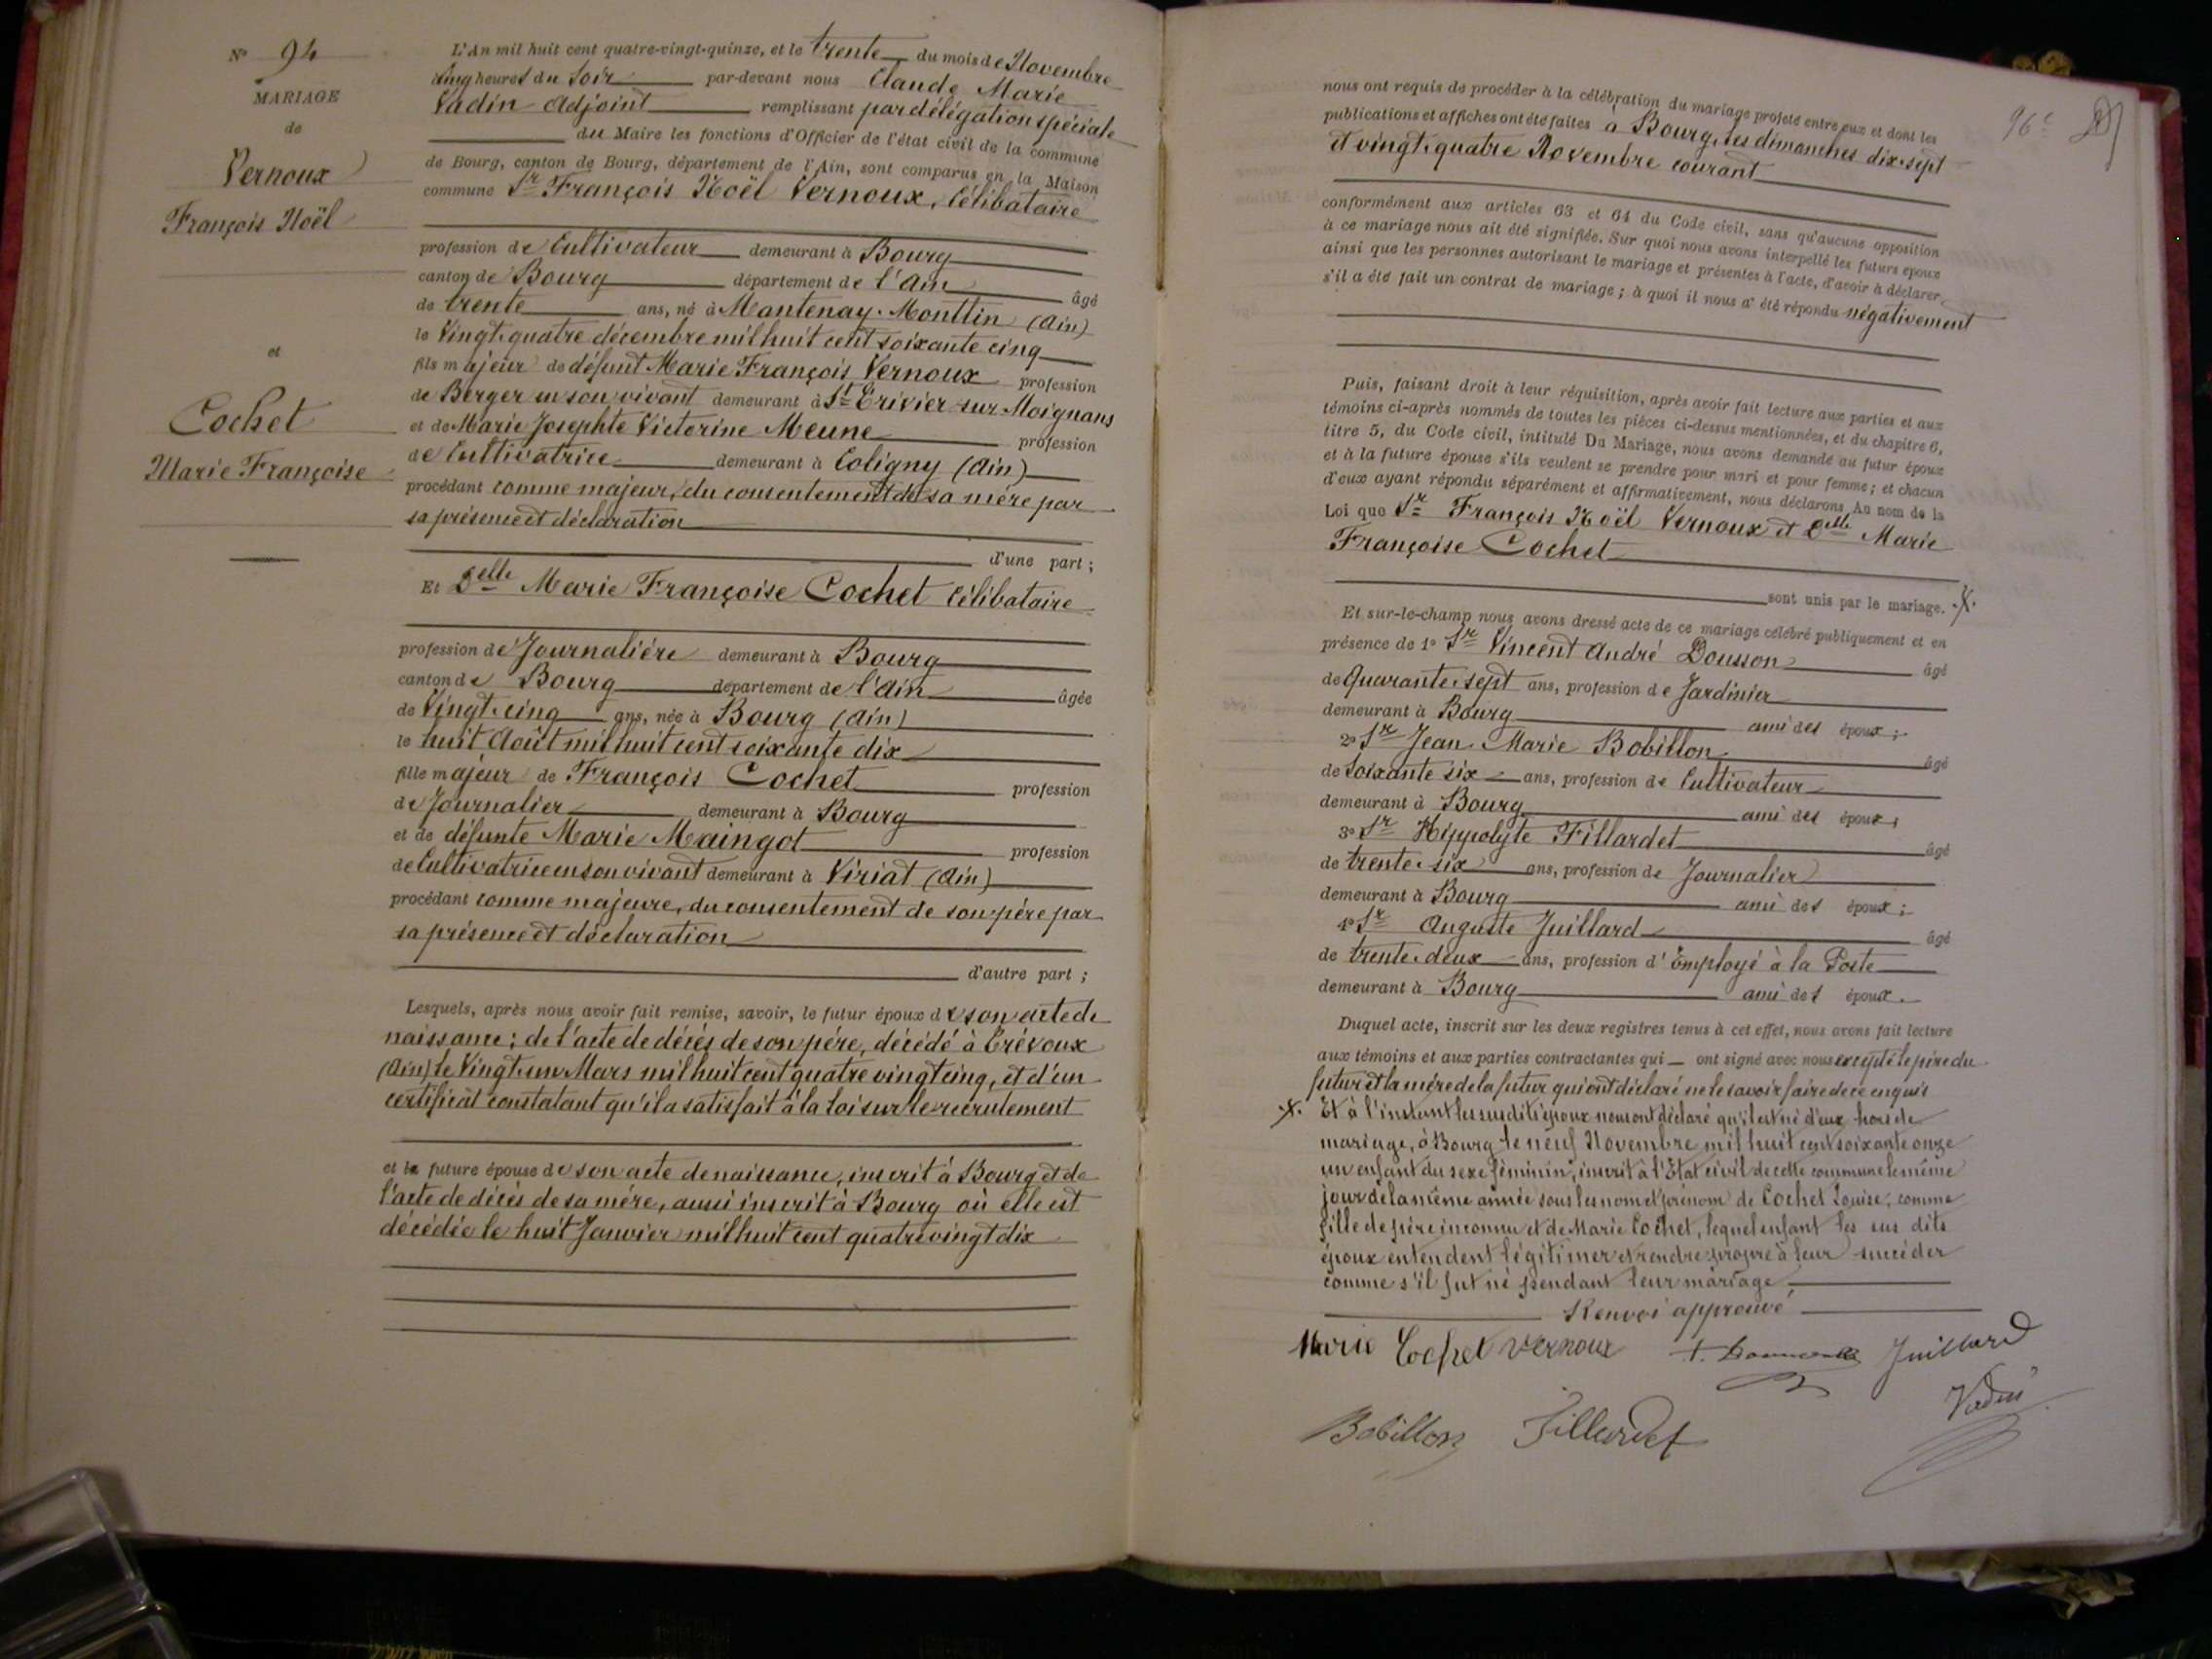 N° 94
MARIAGE
de
Vernoux
François Noël
et
Cochet
Marie Françoise
L'An mil huit cent quatre-vingt-quinze, et le trente du mois de Novembre
cinq heures du soir par-devant nous Claude Marie
Vadin Adjoint remplissant par délégation spéciale
du Maire les fonctions d'Officier de l'état civil de la commune
de Bourg, canton de Bourg, département de l'Ain, sont comparus en la Maison
commune Sr François Noël Vernoux, Célibataire
profession de Cultivateur demeurant à Bourg
canton de Bourg département de l'Ain âgé
de trente ans, né à Mantenay-Montlin (Ain)
le Vingt-quatre décembre mil huit cent soixante cinq
fils majeur de défunt Marie François Vernoux profession
de Berger en son vivant demeurant à St Trivier sur Moignans
et de Marie Josephte Victorine Meune profession
de Cultivatrice demeurant à Coligny (Ain)
procédant comme majeur, du consentement de sa mère par
sa présence et déclaration
d'une part ;
Et Delle Marie Françoise Cochet Célibataire
profession de Journalière demeurant à Bourg
canton de Bourg département de l'Ain âgée
de Vingt-cinq ans, née à Bourg (Ain)
le huit Août mil huit cent soixante dix
fille majeur de François Cochet profession
de Journalier demeurant à Bourg
et de défunte Marie Maingot profession
de Cultivatrice en son vivant demeurant à Viriat (Ain)
procédant comme majeure, du consentement de son père par
sa présence et déclaration
d'autre part ;
Lesquels, après nous avoir fait remise, savoir, le futur époux de son acte de
naissance ; de l'acte de décès de son père, décédé à Trévoux
(Ain) le Vingt-un Mars mil huit cent quatre vingt cinq, et d'un
certificat constatant qu'il a satisfait à la loi sur le recrutement
et la future épouse de son acte de naissance, inscrit à Bourg et de
l'acte de décès de sa mère, aussi inscrit à Bourg où elle est
décédée le huit Janvier mil huit cent quatre vingt dix
96e
nous ont requis de procéder à la célébration du mariage projeté entre eux et dont les
publications et affiches ont été faites à Bourg, les dimanches dix-sept
et vingt-quatre Novembre courant
conformément aux articles 63 et 64 du Code civil, sans qu'aucune opposition
à ce mariage nous ait été signifiée. Sur quoi nous avons interpellé les futurs époux
ainsi que les personnes autorisant le mariage et présentes à l'acte, d'avoir à déclarer
s'il a été fait un contrat de mariage ; à quoi il nous a été répondu négativement
Puis, faisant droit à leur réquisition, après avoir fait lecture aux parties et aux
témoins ci-après nommés de toutes les pièces ci-dessus mentionnées, et du chapitre 6,
titre 5, du Code civil, intitulé Du Mariage, nous avons demandé au futur époux
et à la future épouse s'ils veulent se prendre pour mari et pour femme ; et chacun
d'eux ayant répondu séparément et affirmativement, nous déclarons Au nom de la
Loi que Sr François Noël Vernoux et Delle Marie
Françoise Cochet
sont unis par le mariage. .X.
Et sur-le-champ nous avons dressé acte de ce mariage célébré publiquement et en
présence de 1° Sr Vincent André Dousson âgé
de Quarante-sept ans, profession de Jardinier
demeurant à Bourg ami des époux ;
2° Sr Jean Marie Bobillon âgé
de Soixante six ans, profession de Cultivateur
demeurant à Bourg ami des époux ;
3° Sr Hippolyte Fillardet âgé
de trente-six ans, profession de Journalier
demeurant à Bourg ami des époux ;
4° Sr Auguste Juillard âgé
de trente-deux ans, profession d'Employé à la Poste
demeurant à Bourg ami des époux.
Duquel acte, inscrit sur les deux registres tenus à cet effet, nous avons fait lecture
aux témoins et aux parties contractantes qui ont signé avec nous excepté le père du
futur et la mère de la futur qui ont déclaré ne le savoir faire de ce enquis
.X. Et à l'instant les susdits époux nous ont déclaré qu'il est né d'eux, hors de
mariage, à Bourg le neuf Novembre mil huit cent soixante onze
un enfant du sexe féminin, inscrit à l'Etat civil de cette commune le même
jour de la même année sous les nom et prénom de Cochet Louise, comme
fille de père inconnu et de Marie Cochet, lequel enfant les sus dits
époux entendent légitimer et rendre propre à leur succéder
comme s'il fut né pendant leur mariage
Renvoi approuvé
Marie Cochet Vernoux Juillard
Vadin
Bobillon Fillardet